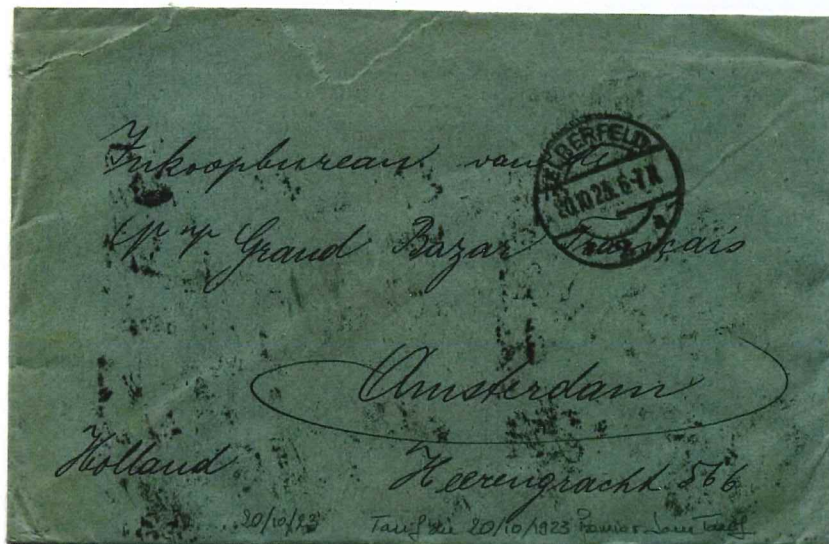 Inkoopbureau van de
Grand Bazar Français
ELBERFELD
20.10.23. 6-7 N
Amsterdam
Holland
Heerengracht 566
20/10/23 Tarif du 20/10/1923 Premier Jour Tarif